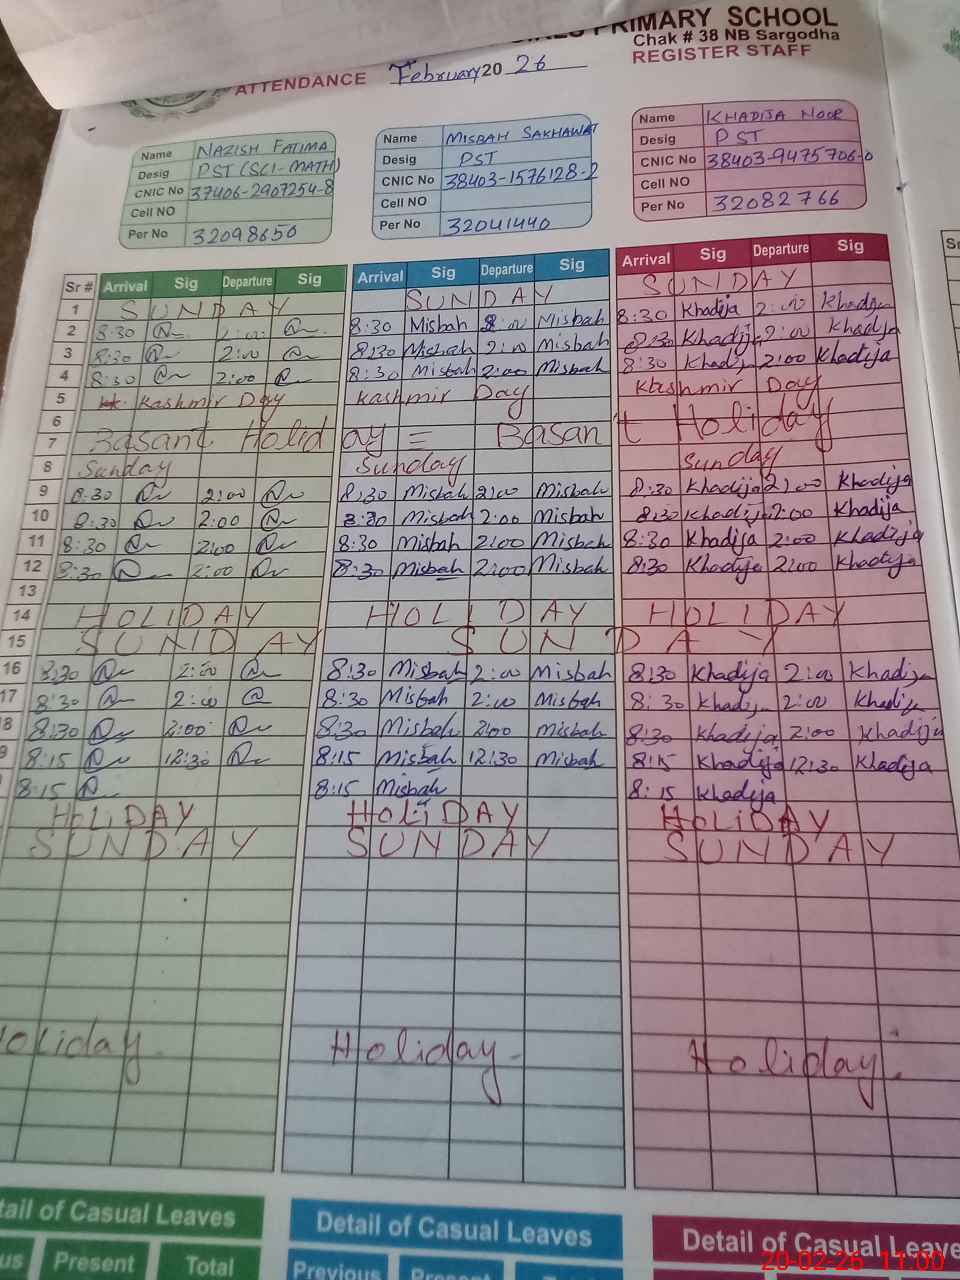 PRIMARY SCHOOL
Chak # 38 NB Sargodha
ATTENDANCE February 20 26 REGISTER STAFF
Name NAZISH FATIMA Name MISBAH SAKHAWAT Name KHADIJA NOOR
Desig PST (SCI-MATH) Desig PST Desig PST
CNIC No 37406-2907254-8 CNIC No 38403-1576128-2 CNIC No 38403-9475706-0
Cell NO Cell NO Cell NO
Per No 32098650 Per No 32041440 Per No 32082766
Sr # Arrival Sig Departure Sig Arrival Sig Departure Sig Arrival Sig Departure Sig
1 SUNDAY SUNDAY SUNDAY
2 8:30 8:30 Misbah Misbah 8:30 Khadija 2:00 Khadija
3 8:30 2:00 8:30 Misbah 2:00 Misbah 8:30 Khadija 2:00 Khadija
4 8:30 2:00 8:30 Misbah 2:00 Misbah 8:30 Khadija 2:00 Khadija
5 Kashmir Day Kashmir Day Kashmir Day
6
7 Basant Holiday = Basant Holiday
8 Sunday Sunday Sunday
9 8:30 2:00 8:30 Misbah 2:00 Misbah 8:30 Khadija 2:00 Khadija
10 8:30 2:00 8:30 Misbah 2:00 Misbah 8:30 Khadija 2:00 Khadija
11 8:30 2:00 8:30 Misbah 2:00 Misbah 8:30 Khadija 2:00 Khadija
12 8:30 2:00 8:30 Misbah 2:00 Misbah 8:30 Khadija 2:00 Khadija
13
14 HOLIDAY HOLIDAY HOLIDAY
15 SUNDAY SUNDAY
16 8:30 2:00 8:30 Misbah 2:00 Misbah 8:30 Khadija 2:00 Khadija
17 8:30 2:00 8:30 Misbah 2:00 Misbah 8:30 Khadija 2:00 Khadija
8 8:30 2:00 8:30 Misbah 2:00 Misbah 8:30 Khadija 2:00 Khadija
9 8:15 12:30 8:15 Misbah 12:30 Misbah 8:15 Khadija 12:30 Khadija
8:15 8:15 Misbah 8:15 Khadija
HOLIDAY HOLIDAY HOLIDAY
SUNDAY SUNDAY SUNDAY
Holiday Holiday Holiday
tail of Casual Leaves Detail of Casual Leaves Detail of Casual Leave
us Present Total Previous Present
20-02-26 11:00